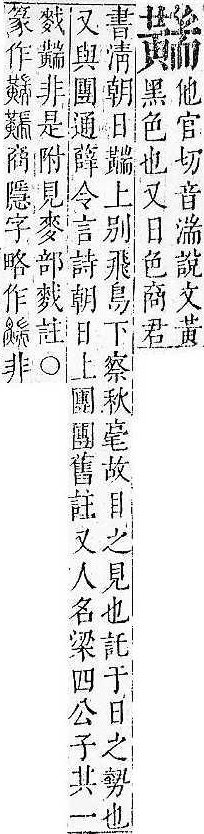 䵎他官切音湍說文黃
黑色也又日色商君
書清朝日䵎上別飛鳥下察秋毫故目之見也託于日之勢也
又與團通薛令言詩朝日上團團舊註又人名梁四公子共一
䵎非是附見麥部註○
篆作商隱字略作非